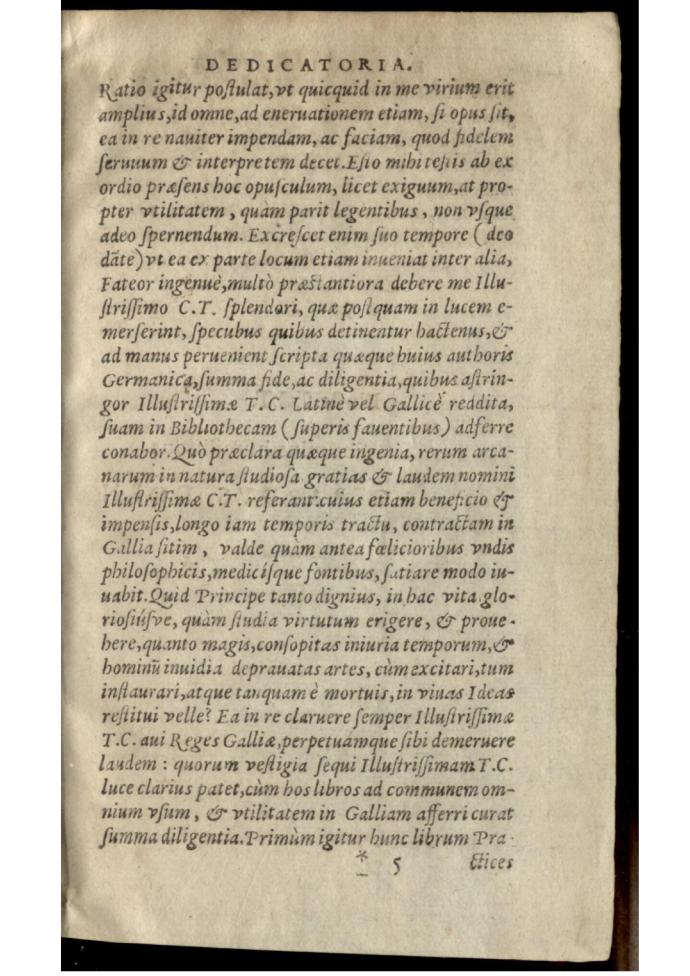 DEDICATORIA.
Ratio igitur poſtulat,vt quicquid in me virium erit
amplius,id omne,ad eneruationem etiam, ſi opus ſit,
ea in re nauiter impendam, ac faciam, quod fidelem
ſeruuum & interpretem decet.Eſto mihi teſtis ab ex
ordio præſens hoc opuſculum, licet exiguum,at pro-
pter vtilitatem, quam parit legentibus, non vſque
adeo ſpernendum. Excreſcet enim ſuo tempore (deo
dāte)vt ea ex parte locum etiam inueniat inter alia,
Fateor ingenuè,multò præstantiora debere me Illu-
ſtriſſimo C.T. ſplendori, quæ poſtquam in lucem e-
merſerint, ſpecubus quibus detinentur hactenus,&
ad manus peruenient ſcripta quæque huius authoris
Germanica,ſumma fide,ac diligentia,quibus aſtrin-
gor Illuſtriſſimæ T.C. Latinè vel Gallicè reddita,
ſuam in Bibliothecam (ſuperis fauentibus) adferre
conabor.Quò præclara quæque ingenia, rerum arca-
narum in natura ſtudioſa gratias & laudem nomini
Illuſtriſſimæ C.T. referant:cuius etiam beneficio &
impenſis,longo iam temporis tractu, contractam in
Gallia ſitim, valde quàm antea fœlicioribus vndis
philoſophicis,mediciſque fontibus,ſatiare modo iu-
uabit.Quid Principe tanto dignius, in hac vita glo-
rioſiúſve, quàm ſtudia virtutum erigere, & proue-
here,quanto magis,conſopitas iniuria temporum,&
hominū inuidia deprauatas artes, cùm excitari,tum
inſtaurari,atque tanquam è mortuis,in viuas Ideas
reſtitui velle? Ea in re claruere ſemper Illuſtriſſimæ
T.C. aui Reges Galliæ,perpetuamque ſibi demeruere
laudem : quorum veſtigia ſequi Illuſtriſſimam T.C.
luce clarius patet,cùm hos libros ad communem om-
nium vſum, & vtilitatem in Galliam afferri curat
ſumma diligentia.Primùm igitur hunc librum Pra-
* 5 ctices